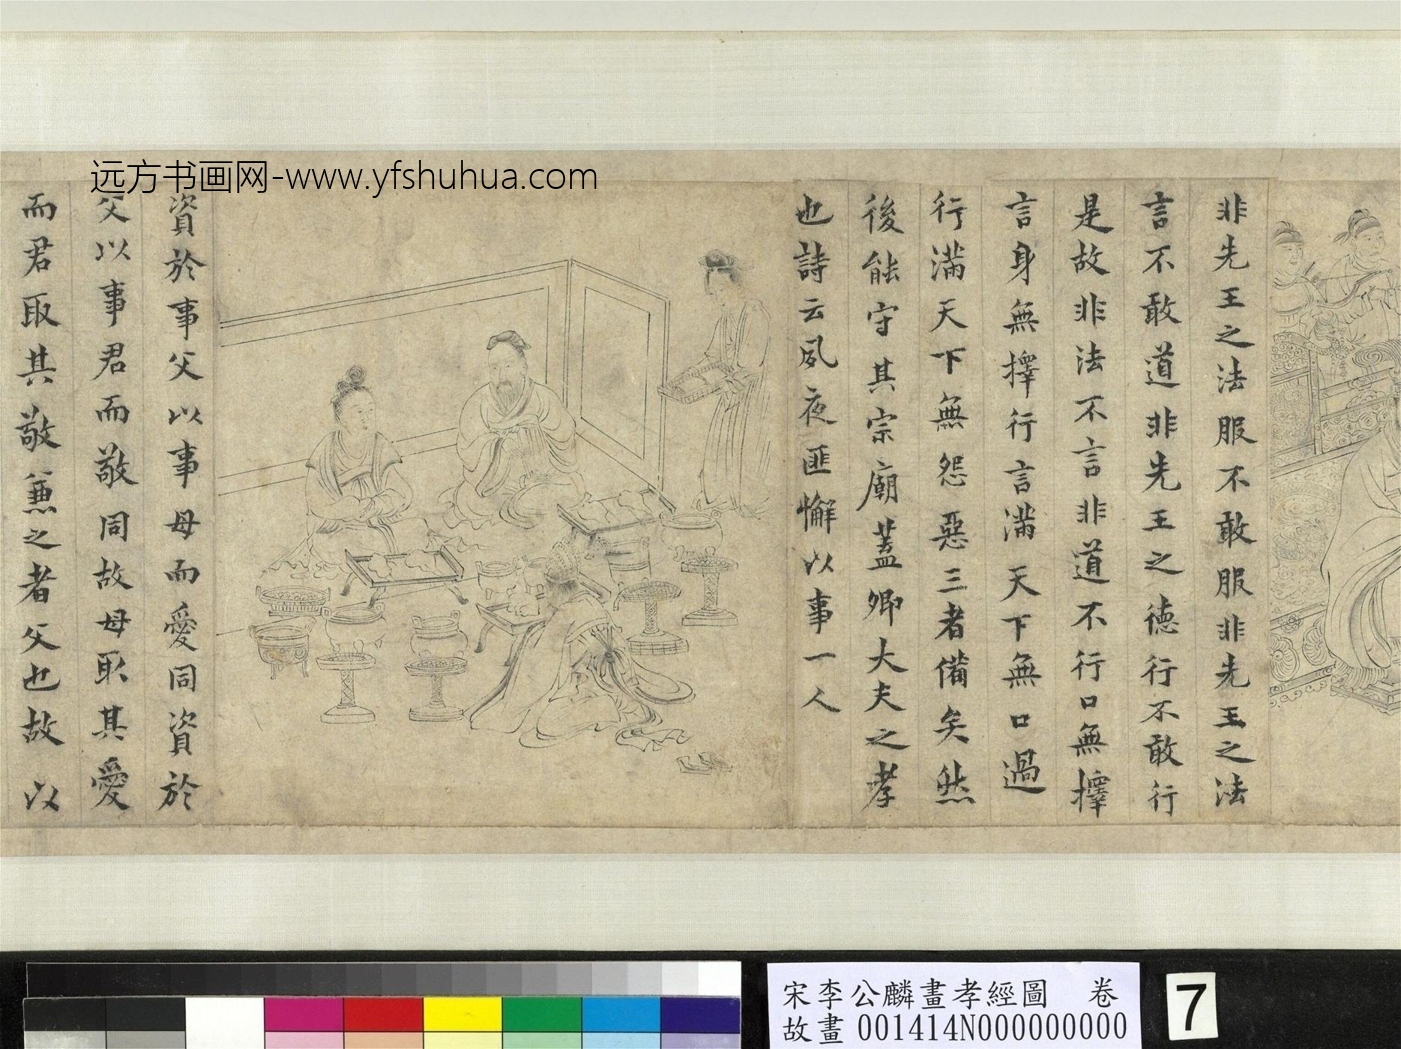 远方书画网-www.yfshuhua.com
非先王之法服不敢服非先王之法
言不敢道非先王之德行不敢行
是故非法不言非道不行口無擇
言身無擇行言滿天下無口過
行滿天下無怨惡三者備矣然
後能守其宗廟蓋卿大夫之孝
也詩云夙夜匪懈以事一人
資於事父以事母而愛同資於
父以事君而敬同故母取其愛
而君取其敬兼之者父也故以
宋李公麟畫孝經圖 卷
故畫001414N000000000
7